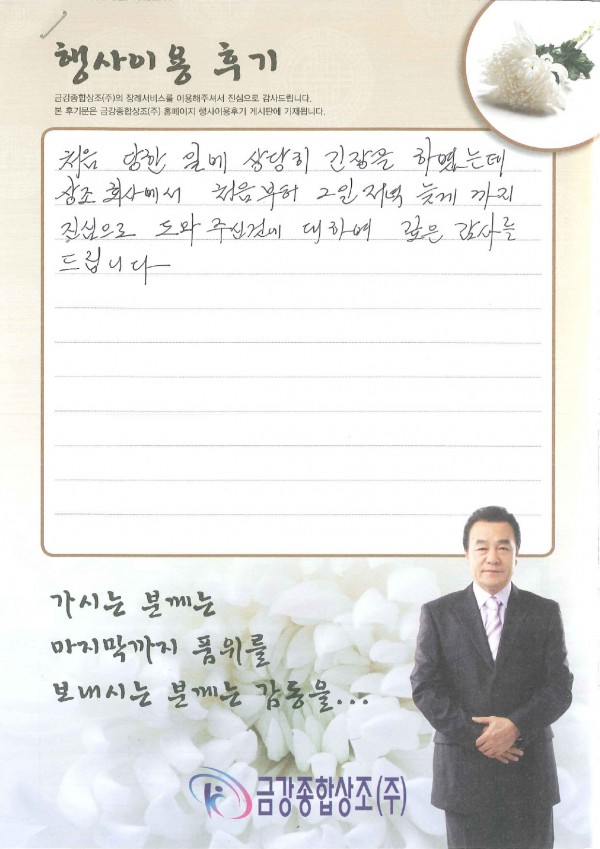 행사이용 후기
금강종합상조(주)의 장례서비스를 이용해주셔서 진심으로 감사드립니다.
본 후기문은 금강종합상조(주) 홈페이지 행사이용후기 게시판에 기재됩니다.
처음 당한 일에 상당히 긴장을 하였는데
상조 회사에서 처음부터 2일 저녁 늦게 까지
진심으로 도와 주신것에 대하여 깊은 감사를
드립니다
가시는 분께는
마지막까지 품위를
보내시는 분께는 감동을...
금강종합상조(주)